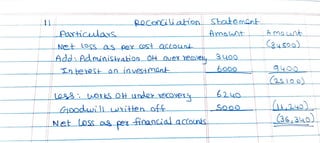 11 Reconciliation Statement
Particulars Amount Amount
Net loss as per cost account (34500)
Add: Administration OH over recovery 3400
Interest on investment 6000 9400
(25100)
Less: Works OH under recovery 6240
Goodwill written off 5000 (11,240)
Net Loss as per financial accounts (36,340)